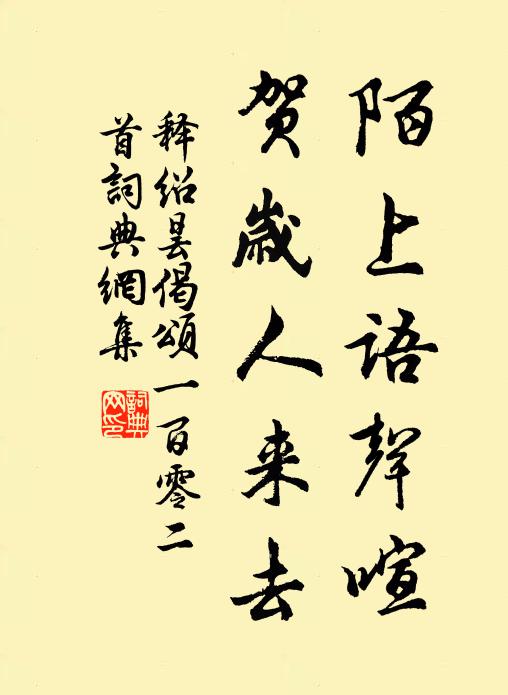 陌上语聲喧
贺歲人来去
释绍昙偈頌一百零二
首詞典網集
詞典网印